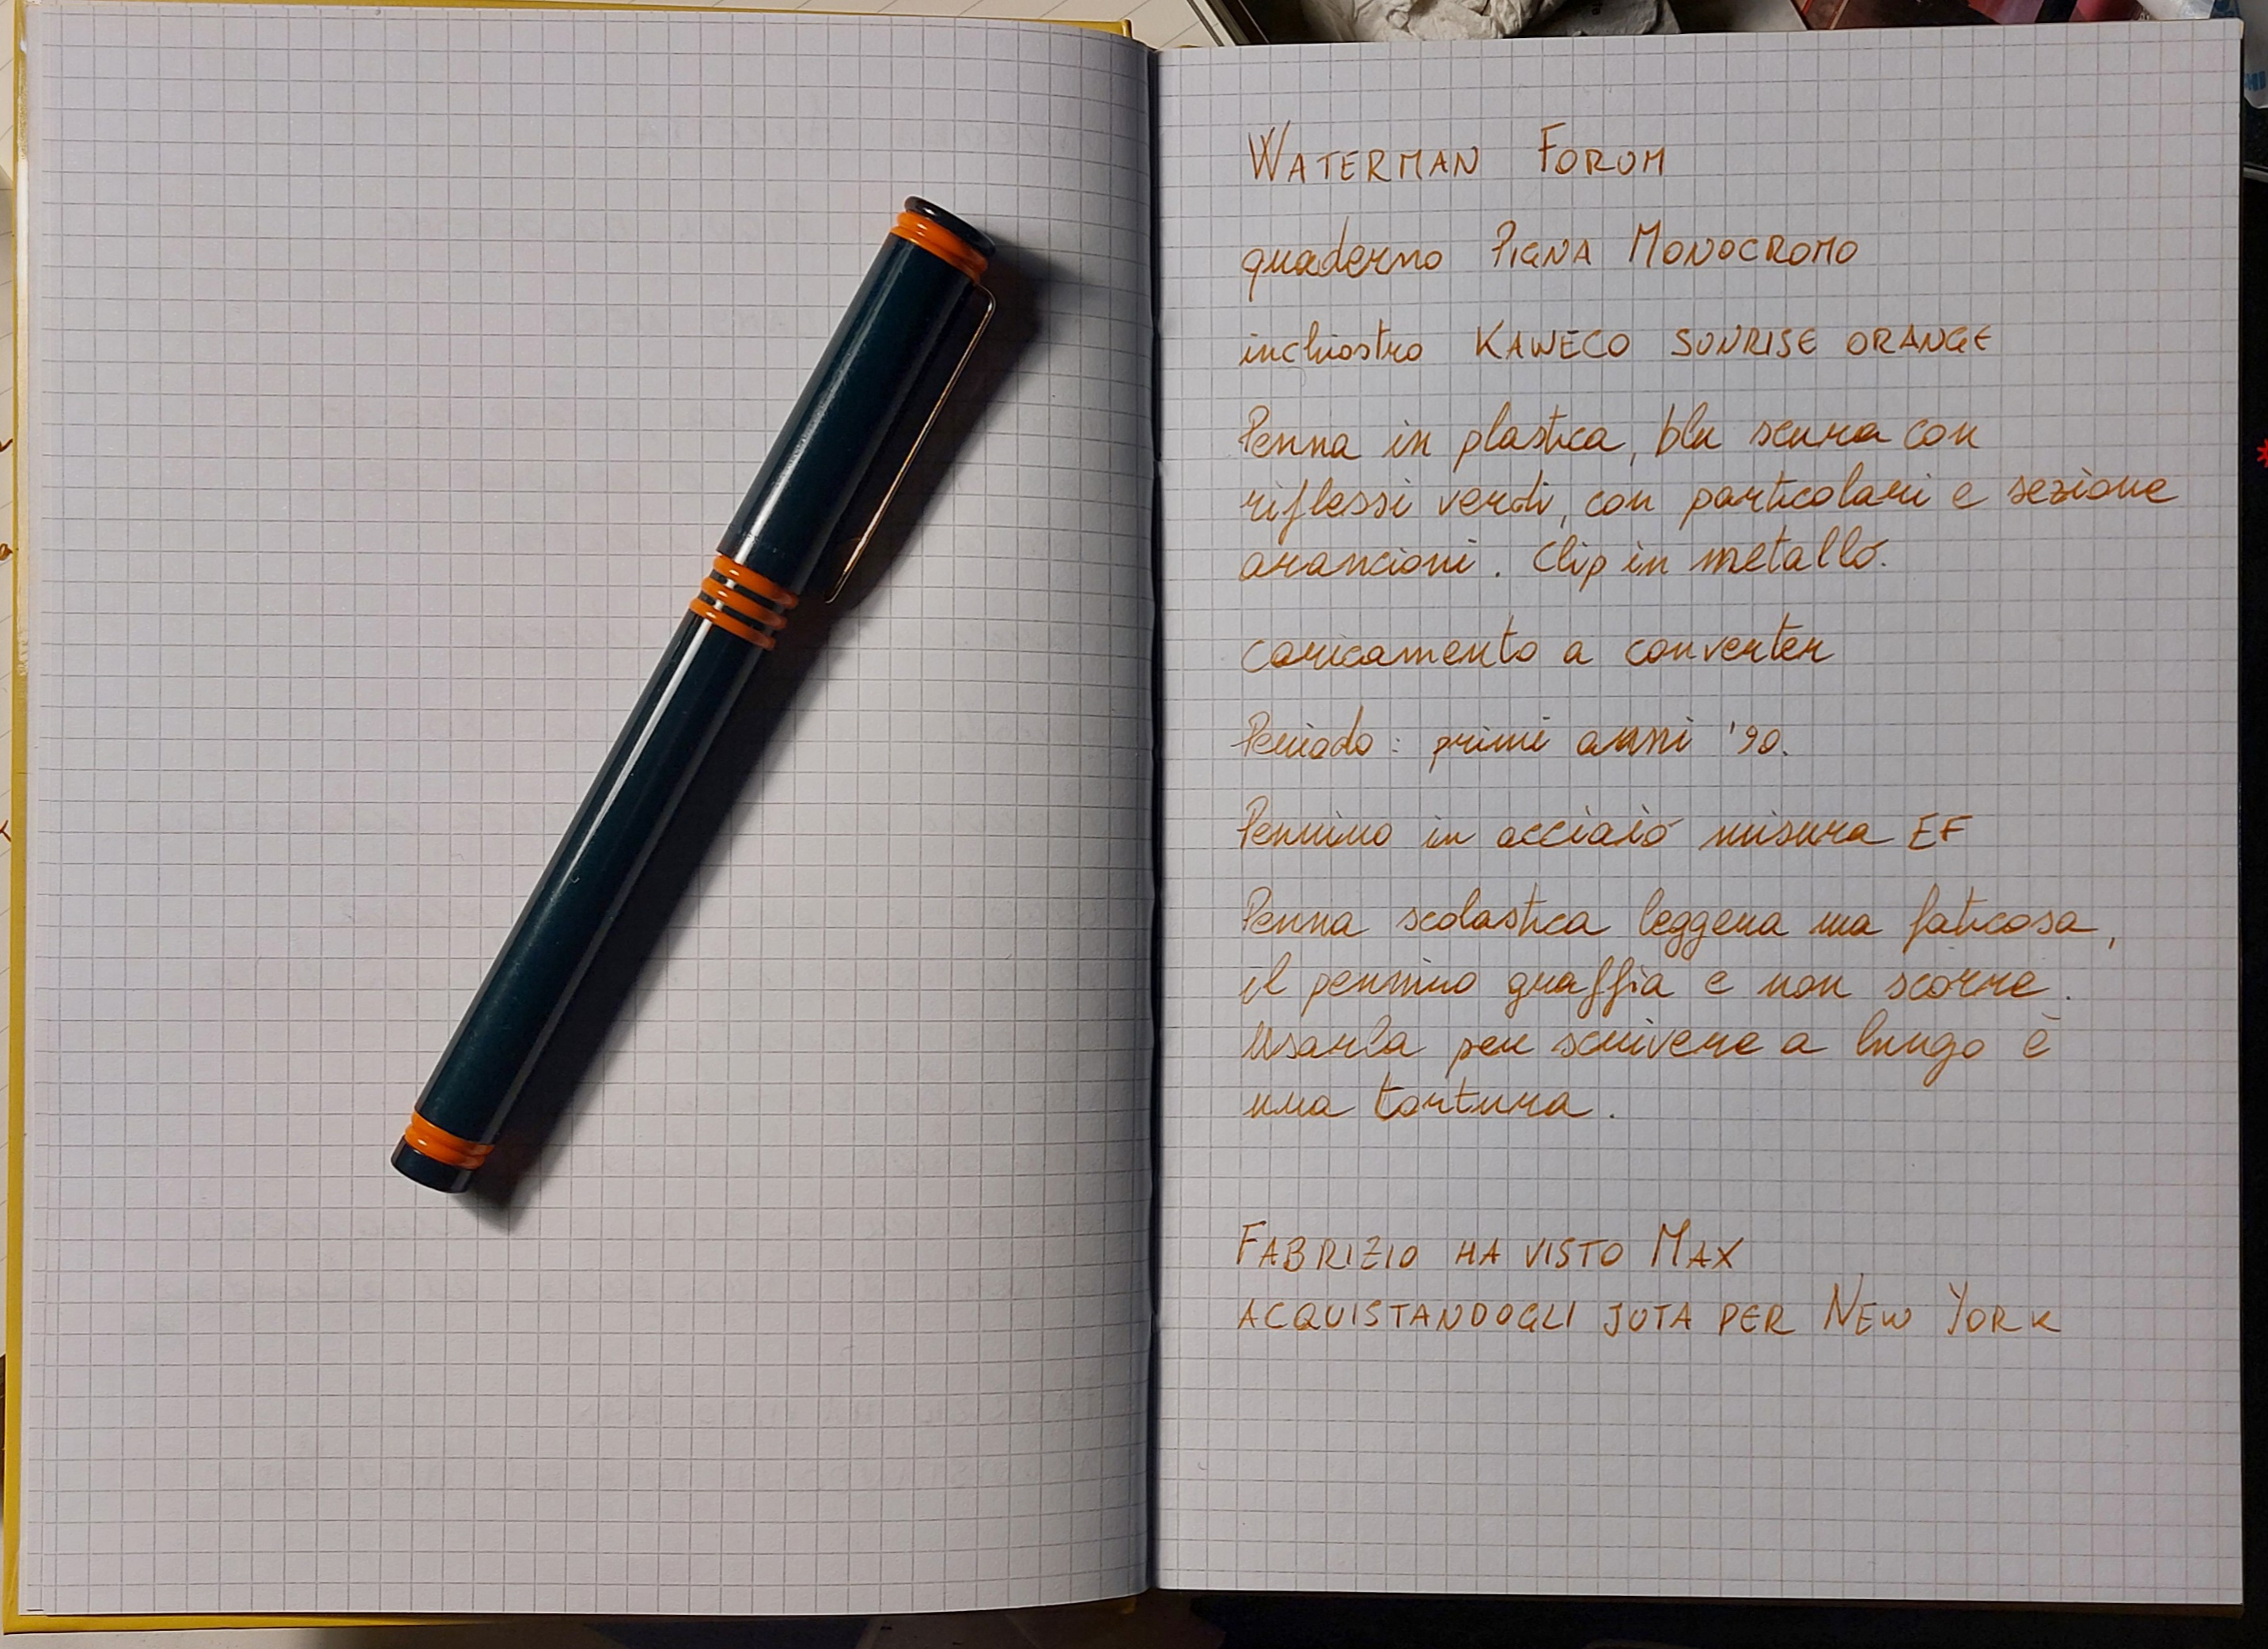 Waterman Forum
quaderno Pigna Monocromo
inchiostro KAWECO SUNRISE ORANGE
Penna in plastica, blu scura con
riflessi verdi, con particolari e sezione
arancioni. Clip in metallo.
caricamento a converter
Periodo: primi anni '90.
Pennino in acciaio misura EF
Penna scolastica leggera ma faticosa,
il pennino graffia e non scorre.
Usarla per scrivere a lungo è
una tortura.
FABRIZIO HA VISTO MAX
ACQUISTANDOGLI JUTA PER NEW YORK